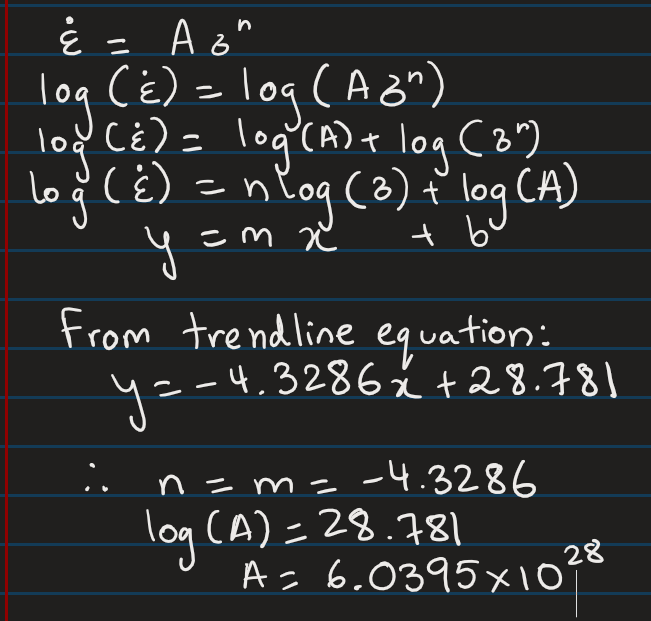 ε̇ = A σⁿ
log (ε̇) = log (A σⁿ)
log (ε̇) = log (A) + log (σⁿ)
log (ε̇) = n log (σ) + log (A)
y = m x + b
From trendline equation:
y = -4.3286x + 28.781
∴ n = m = -4.3286
log (A) = 28.781
A = 6.0395 × 10²⁸